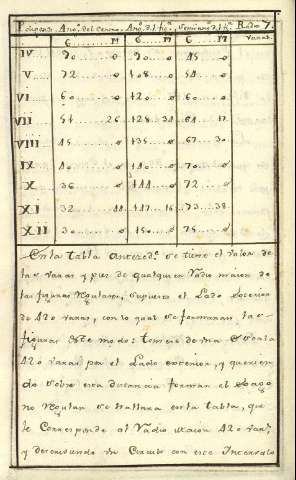 Poligonos Ang.s del Centro. Ang.s d.l fig.a Semiang.s d.l f.a Radio 7.
G M G M G M Varas.
IV 90 0 90 0 45 0
V 72 0 108 0 54 0
VI 60 0 120 0 60 0
VII 51 26 128 34 64 17
VIII 45 0 135 0 67 30
IX 40 0 140 0 70 0
X 36 0 144 0 72 0
XI 32 44 147 16 73 38
XII 30 0 150 0 75 0
En la tabla anteced.te se tiene el valor de
las varas y pies de qualquier Radio maior de
las figuras Regulares, supuesto el Lado exterior
de 120 varas, con lo qual se formaran las
figuras de este modo: tomese de una
120 varas por el Lado exterior, y querien
do sobre esta distancia formar el
no Regular se hallara en la tabla, que
le corresponde al Radio maior 120 var.s
y descriuiendo un Circulo con este Intervalo